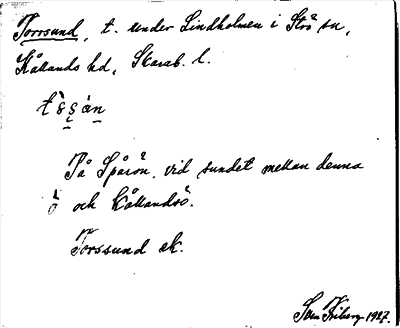 Torrsund, t. under Lindholmen i Strö sn,
Kållands hd, Skarab. l.
På Spårön, vid sundet mellan denna
ö och Kållandsö.
Torssund ek.
Sven Friberg 1927.